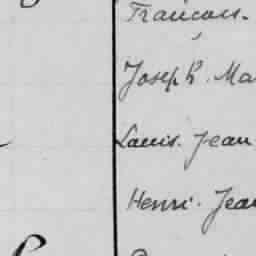 François.
Joseph. Ma
Louis. Jean
Henri. Jean